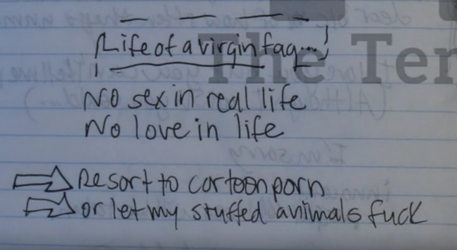 Life of a virgin fag...
The Ter
No sex in real life
No love in life
Resort to cartoon porn
or let my stuffed animals fuck